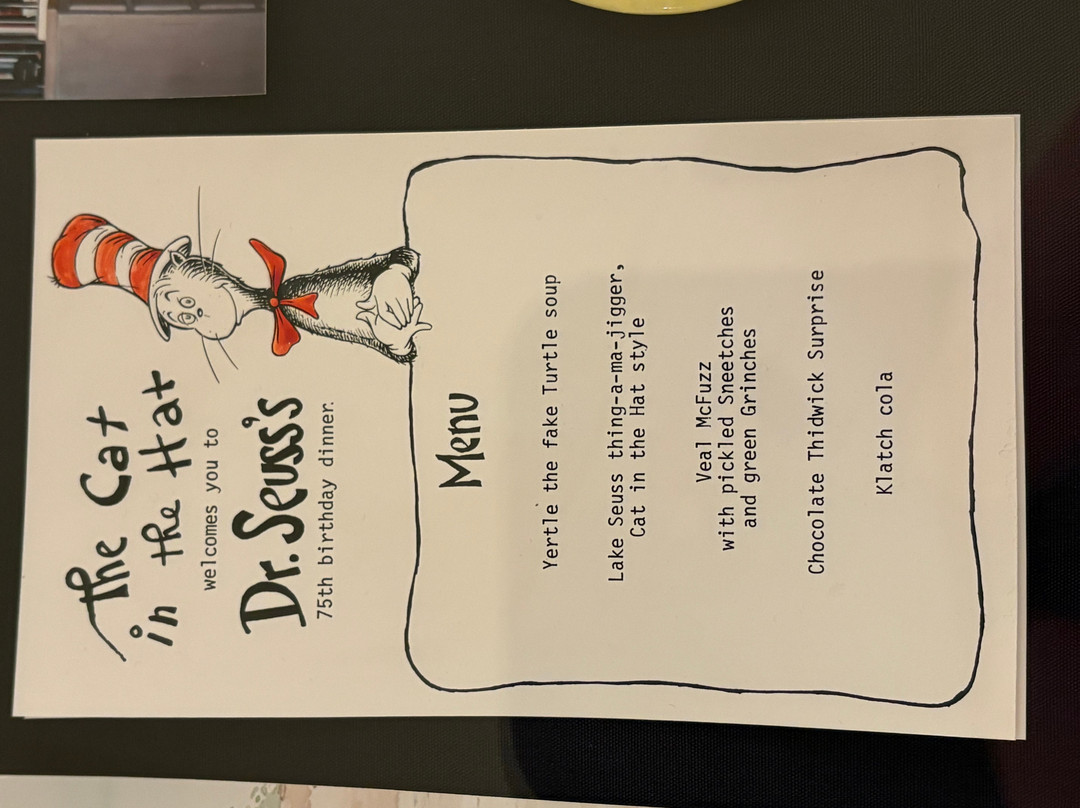 The Cat
in the Hat
welcomes you to
Dr. Seuss's
75th birthday dinner.
Menu
Yertle the fake Turtle soup
Lake Seuss thing-a-ma-jigger,
Cat in the Hat style
Veal McFuzz
with pickled Sneetches
and green Grinches
Chocolate Thidwick Surprise
Klatch cola